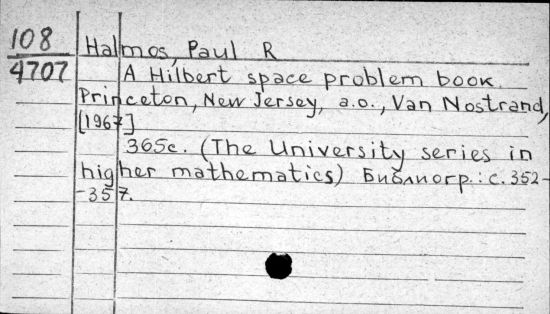 108 Halmos, Paul R
4707 A Hilbert space problem book.
Princeton, New Jersey, a.o., Van Nostrand,
[1967]
365c. (The University series in
higher mathematics) Библиогр.: с. 352-
-357.